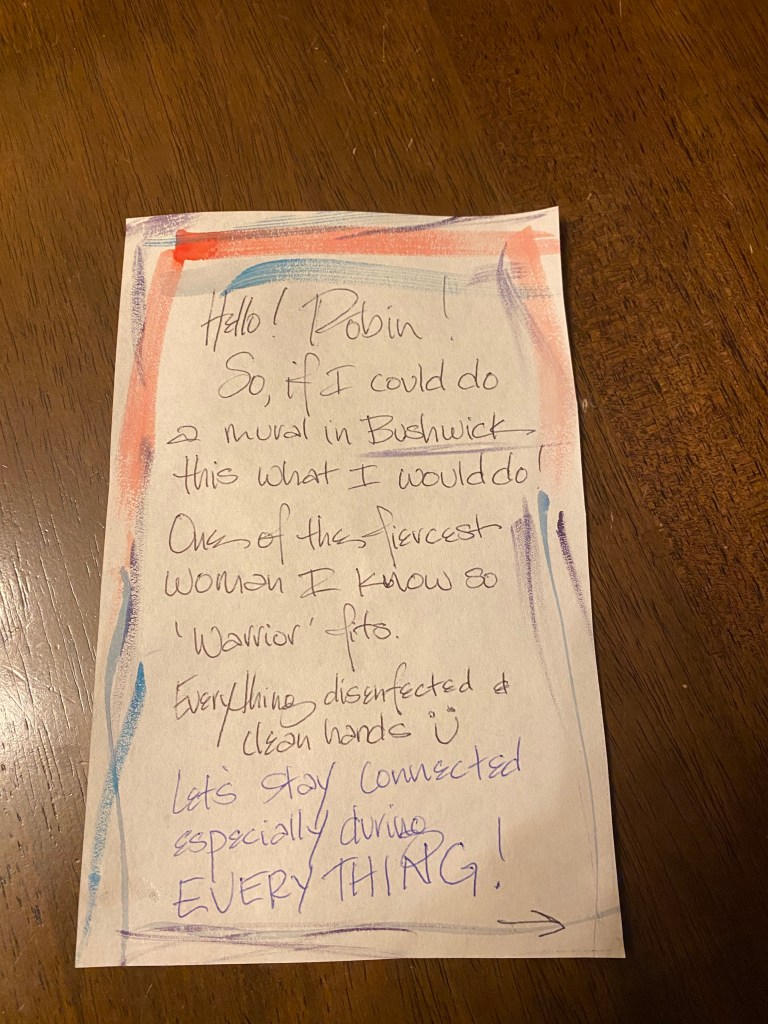 Hello! Robin!
So, if I could do
a mural in Bushwick
this what I would do!
One of the fiercest
woman I know so
'Warrior' fits.
Everything disenfected &
clean hands Ü
Let's stay connected
especially during
EVERYTHING!
→